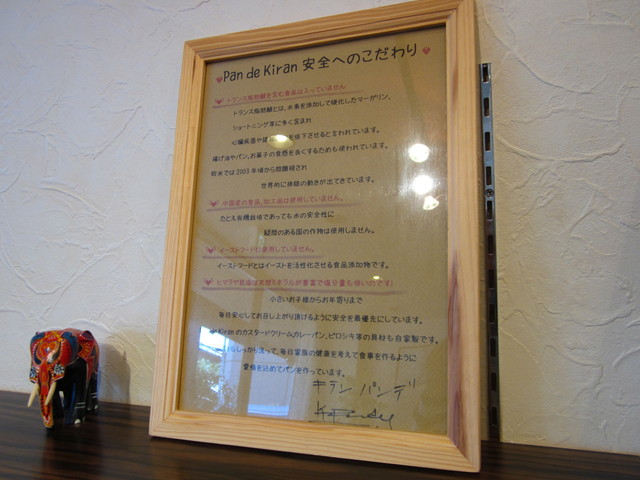 Pan de Kiran 安全へのこだわり
トランス脂肪酸を含む食品は入っていません
トランス脂肪酸とは、水素を添加して硬化したマーガリン、
ショートニング等に多く含まれ
心臓疾患や を低下させると言われています。
揚げ油やパン、お菓子の食感を良くするためも使われています。
欧米では2003年頃から問題視され
世界的に排除の動きが出てきています。
中国産の食品、加工品は使用していません。
たとえ有機栽培であっても水の安全性に
疑問のある国の作物は使用しません。
イーストフードは使用していません。
イーストフードとはイーストを活性化させる食品添加物です。
ヒマラヤ岩塩は天然ミネラルが豊富で塩分量も低いのです!
小さいお子様からお年寄りまで
毎日安心してお召し上がり頂けるように安全を最優先にしています。
de Kiranのカスタードクリーム、カレーパン、ピロシキ等の具材も自家製です。
しっかり洗って、毎日家族の健康を考えて食事を作るように
愛情を込めてパンを作っています。
キラン パンデ